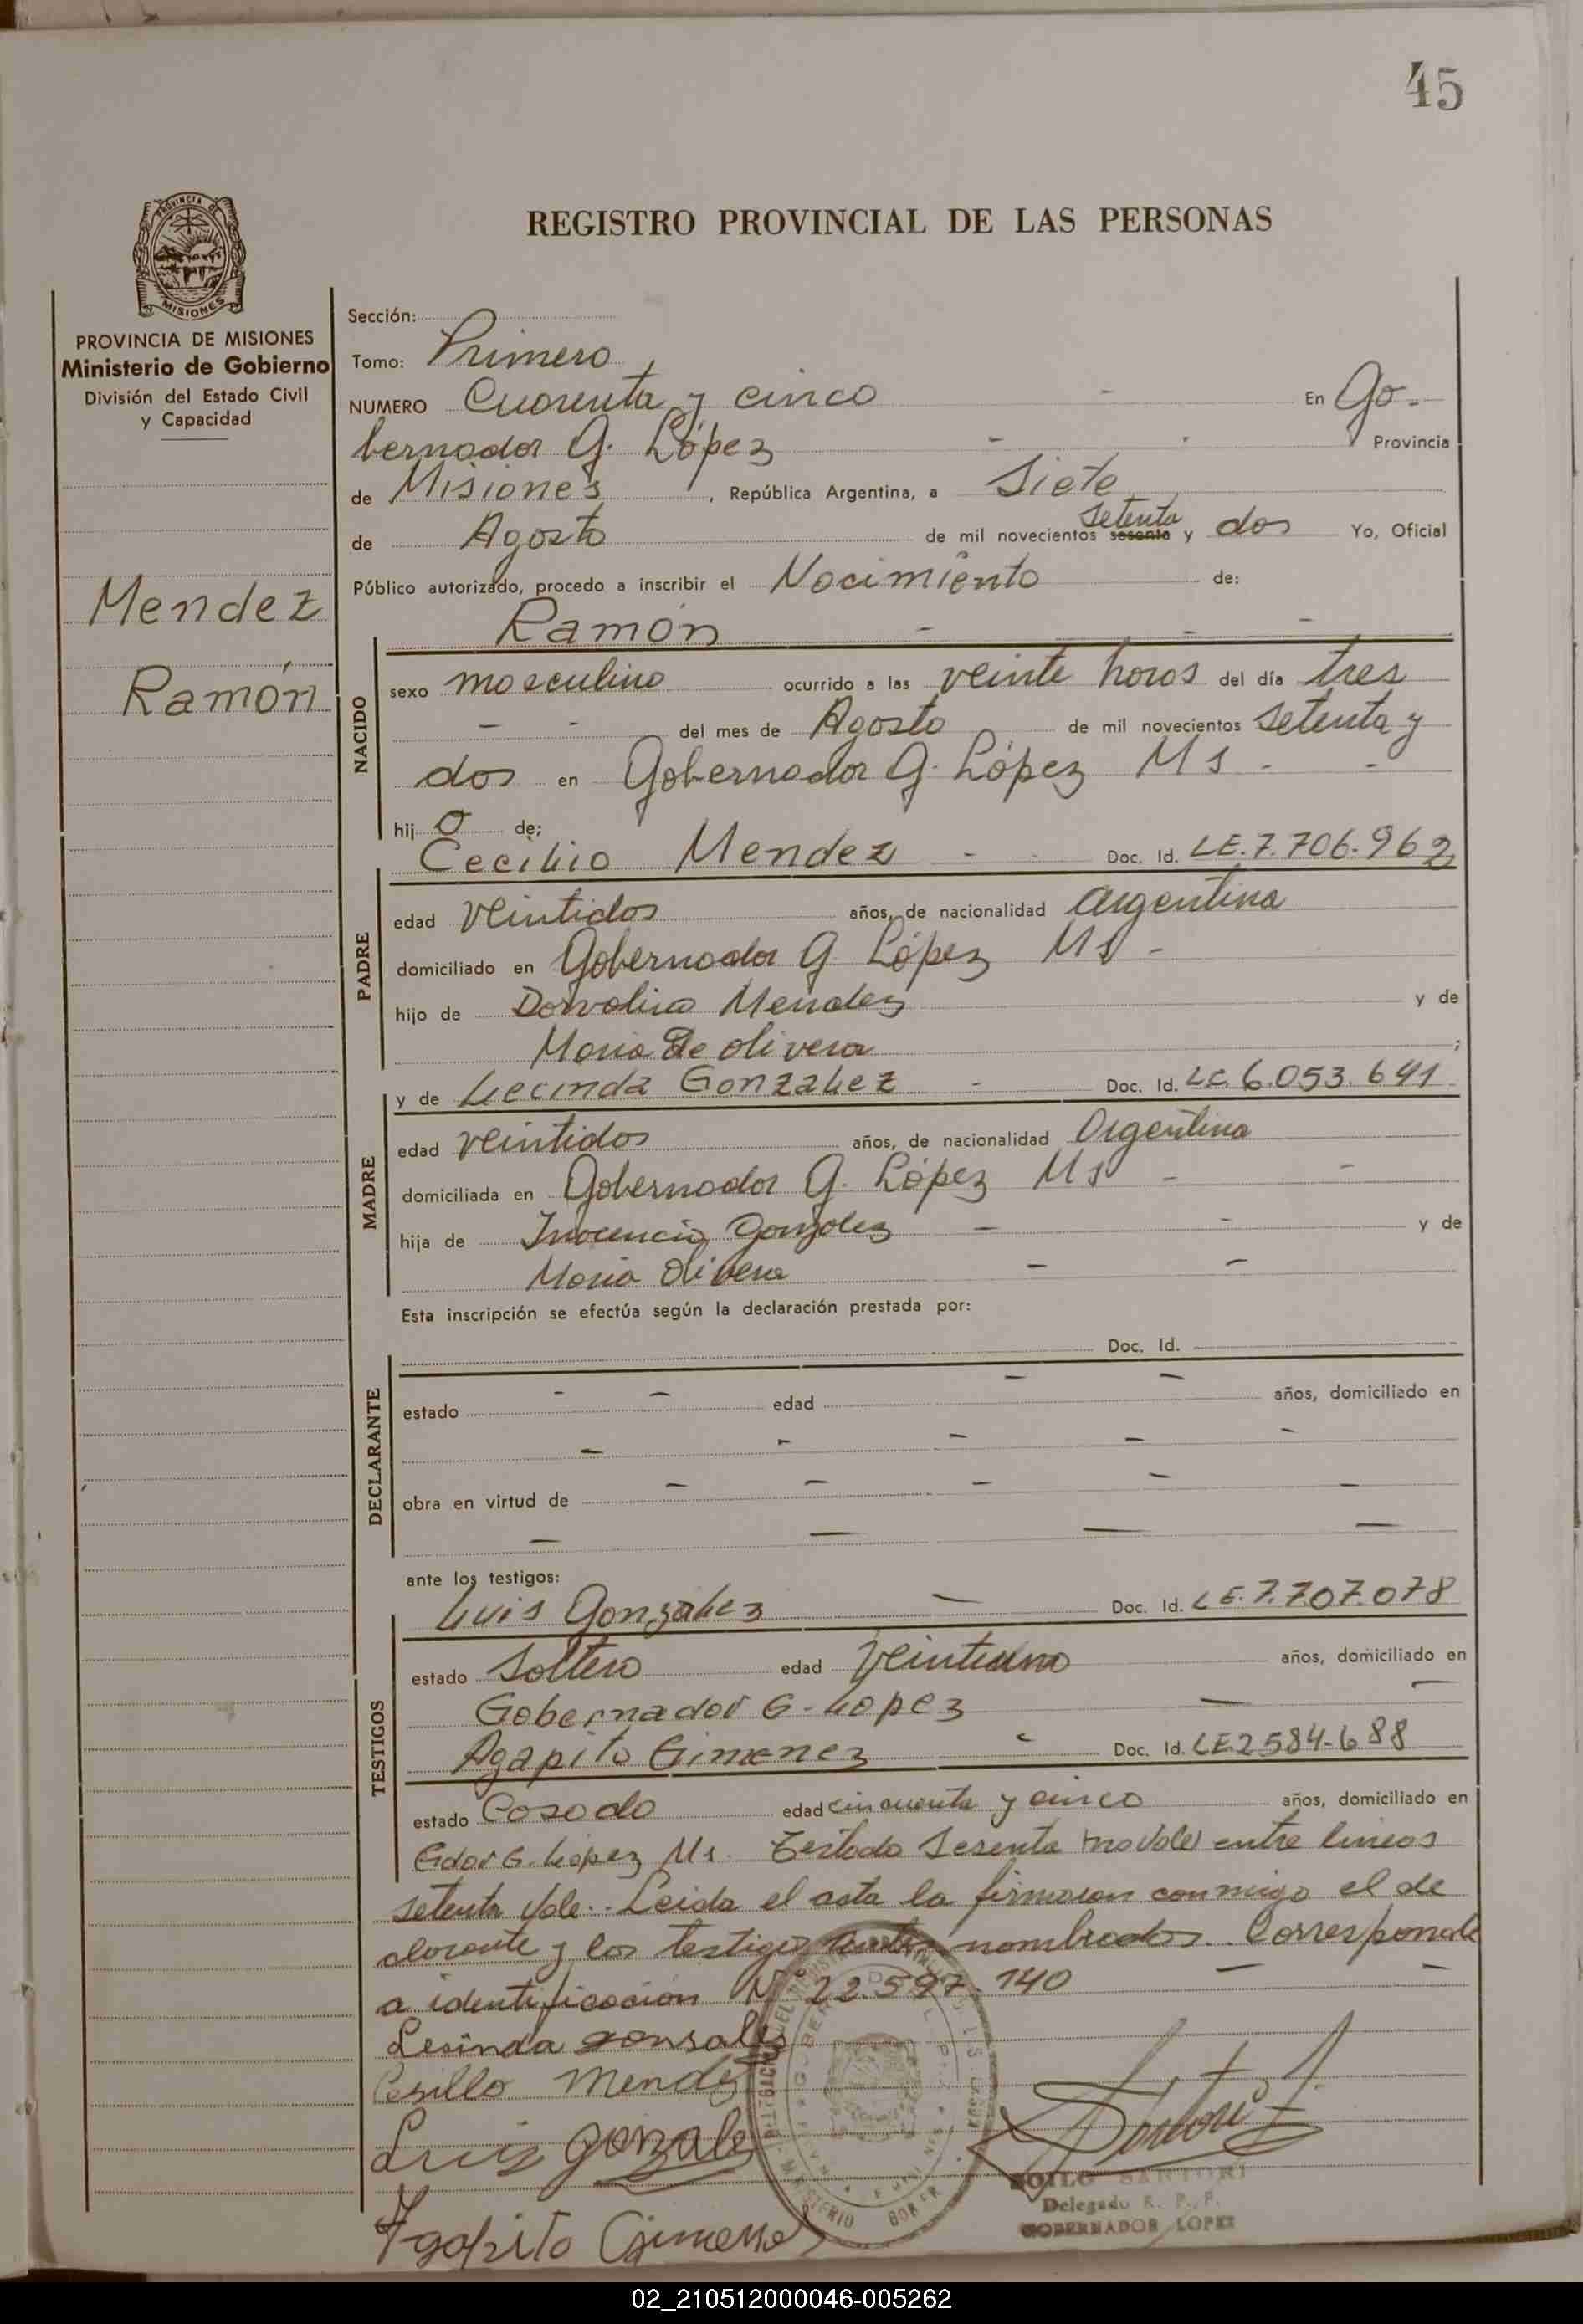 45
REGISTRO PROVINCIAL DE LAS PERSONAS
PROVINCIA DE MISIONES
Ministerio de Gobierno
División del Estado Civil
y Capacidad
Mendez
Ramón
Sección:
Tomo: Primero
NUMERO Cuarenta y cinco - En Go-
bernador G. López - - Provincia
de Misiones, República Argentina, a Siete
de Agosto de mil novecientos sesenta setenta y dos Yo, Oficial
Público autorizado, procedo a inscribir el Nacimiento de:
Ramón - - -
NACIDO
sexo masculino ocurrido a las veinte horas del día tres
- - del mes de Agosto de mil novecientos setenta y
dos en Gobernador G. López Ms - -
hij o de;
Cecilio Mendez - - Doc. Id. LE.7.706.962
PADRE
edad veintidos años, de nacionalidad argentina
domiciliado en Gobernador G López Ms -
hijo de Dorvalino Mendez y de
Maria De Olivera ;
y de Lecinda Gonzalez - Doc. Id. LC.6.053.641
MADRE
edad veintidos años, de nacionalidad Argentina
domiciliada en Gobernador G. López Ms - -
hija de Inocencio Gonzalez - - y de
Maria Olivera - -
Esta inscripción se efectúa según la declaración prestada por:
Doc. Id.
DECLARANTE
estado - - edad - - años, domiciliado en
- - - - -
obra en virtud de - - - - -
- - - -
ante los testigos:
Luis Gonzalez - Doc. Id. LE.7.707.078
TESTIGOS
estado Soltero edad Veintiuno años, domiciliado en
Gobernador G. Lopez - -
Agapito Gimenez - Doc. Id. LE2584.688
estado Casado edad cincuenta y cinco años, domiciliado en
Gdor G. López Ms. Testado Sesenta no Vale entre lineas
setenta Vale.- Leida el acta la firmaron conmigo el de
clarante y los testigos nombrados. Corresponde
a identificación Nº 22.597.140 - -
Lesinda gonsales
Cesillo Mendez
Luis gonzale
Agapito Gimenez
SOILO SARTORI
Delegado R. P. P.
GOBERNADOR LOPEZ
02_210512000046-005262